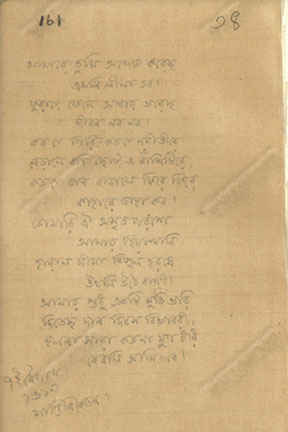 161
আমারে তুমি অশেষ করেছ
এমনি লীলা তব!
ফুরায়ে ফেলে আবার ভরেছ
জীবন নব নব!
কত যে গিরি কত যে নদীতীরে
বেড়ালে বহি ছোট এ বাঁশিটিরে
কত যে তান বাজালে ফিরে ফিরে
কাহারে তাহা কব!
তোমারি ঐ অমৃতপরশে
আমার হিয়াখানি
হারাল সীমা বিপুল হরষে
উথলি উঠে বাণী!
আমার শুধু একটি মুঠি ভরি
দিতেছ দান দিবস বিভাবরী,
হল না সারা কত না যুগ ধরি
কেবলি আমি লব!
৭ই বৈশাখ
শান্তিনিকেতন!